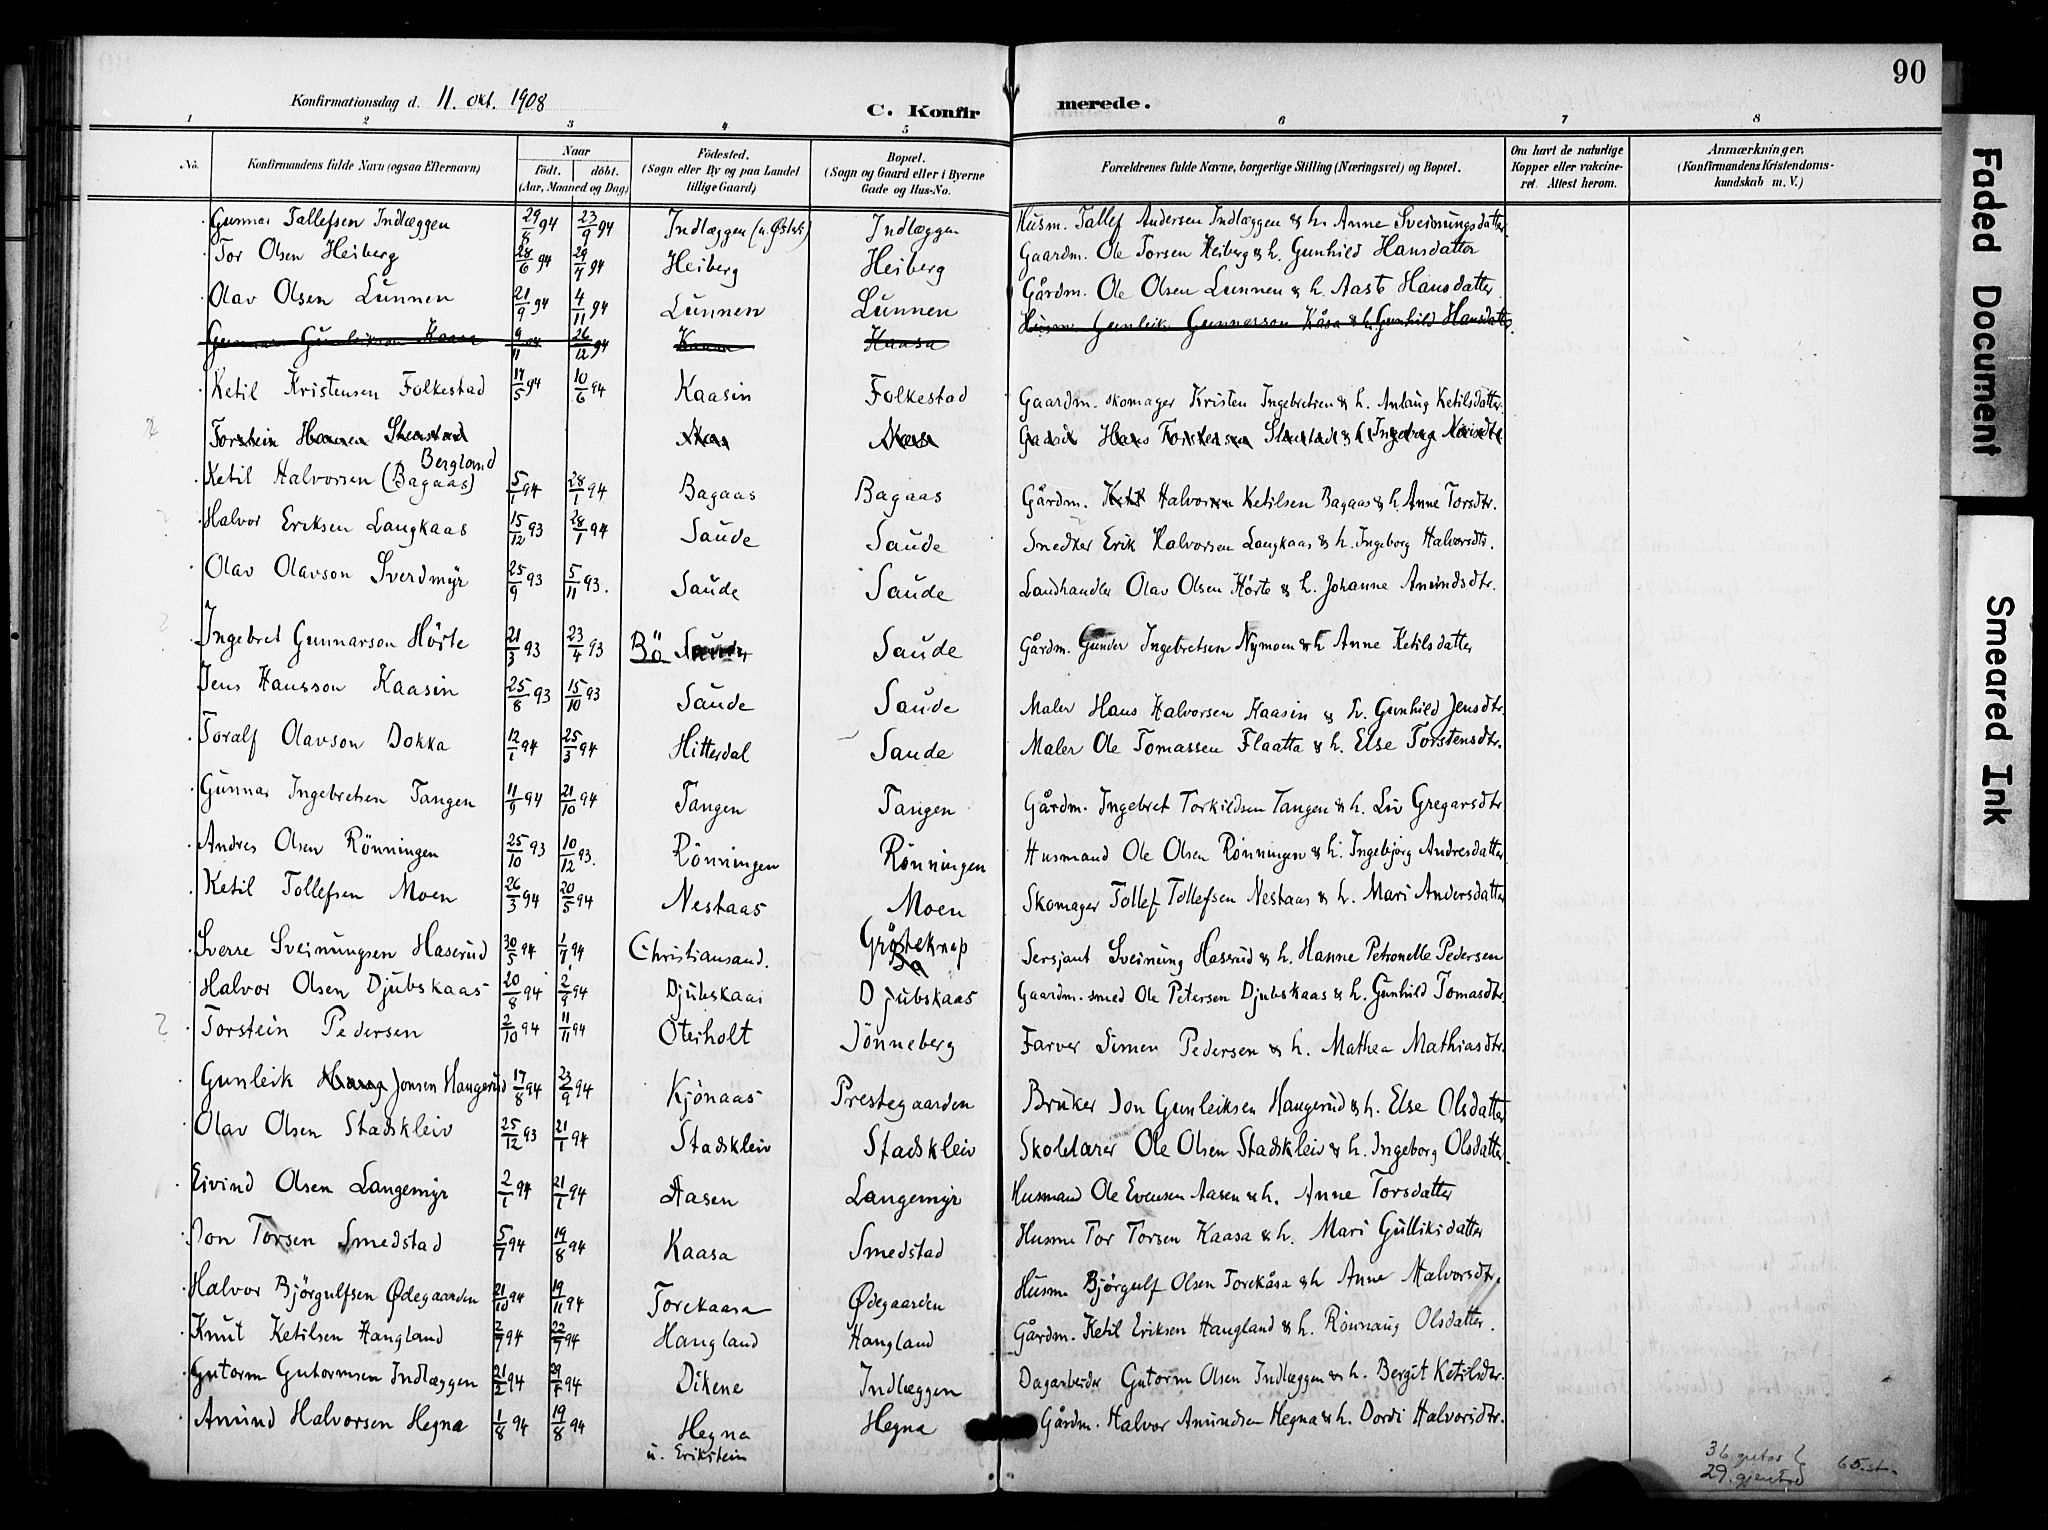 90
Konfirmationsdag d. 11. okt. 1908 C. Konfirmerede.
1 2 3 4 5 6 7 8
No. Konfirmandens fulde Navn (ogsaa Efternavn) Naar født. døbt. (Aar, Maaned og Dag) Födested. (Sogn eller By og paa Landet tillige Gaard) Bopæl. (Sogn og Gaard eller i Byerne Gade og Hus-No. Forældrenes fulde Navne, borgerlige Stilling (Næringsvei) og Bopæl. Om havt de naturlige Kopper eller vaccineret. Attest herom. Anmærkninger. (Konfirmandens Kristendomskundskab m. V.)
Gunnar Tallefsen Indlæggen 29/8 94 23/9 94 Indlæggen Indlæggen Husm. Tallef Andersen Indlæggen & h. Anne Sveinungsdatter
Tor Olsen Heiberg 28/6 94 29/7 94 Heiberg Heiberg Gaardm. Ole Torsen Heiberg & h. Gunhild Hansdatter
Olav Olsen Lunnen 21/9 94 4/11 94 Lunnen Lunnen Gårdm. Ole Olsen Lunnen & h. Aaste Hansdatter
Gunnar Gunleiksen Kaasa 9/11 94 26/12 94 Kaasa Kaasa Husm. Gunleik Gunnarsson Kåsa & h. Gunhild Hansdatter
Ketil Kristensen Folkestad 17/5 94 10/6 94 Kaasin Folkestad Gaardm. skomager Kristen Ingebretsen & h. Anlaug Ketilsdatter
Torstein Hansen Hans
Bergland
Ketil Halvorsen (Bagaas) 5/1 94 28/1 94 Bagaas Bagaas Gårdm. Ketil Halvorsen Ketilsen Bagaas & h. Anne Torsdtr.
Halvor Eriksen Langkaas 15/12 93 28/1 94 Saude Saude Snedker Erik Halvorsen Langkaas & h. Ingeborg Halvorsdtr.
Olav Olavson Sverdmyr 25/9 93 5/11 93. Saude Saude Landhandler Olav Olsen Hörte & h. Johanne Amundsdtr.
Ingebret Gunnarson Hörte 21/3 93 23/4 93 Bö Saude Saude Gårdm. Gunder Ingebretsen Nymoen & h. Anne Ketilsdatter
Jens Hansson Kaasin 25/8 93 15/10 93 Saude Saude Maler Hans Halvorsen Kaasin & h. Gunhild Jensdtr.
Toralf Olavson Dokka 12/1 94 25/3 94 Hitterdal Saude Maler Ole Tomassen Flaatta & h. Else Torstensdtr.
Gunnar Ingebretsen Tangen 11/9 94 21/10 94 Tangen Tangen Gårdm. Ingebret Torkildsen Tangen & h. Liv Gregarsdtr.
Andres Olsen Rönningen 25/10 93 10/12 93. Rönningen Rönningen Husmand Ole Olsen Rönningen & h. Ingebjörg Andresdatter
Ketil Tollefsen Moen 26/3 94 20/5 94 Nestaas Moen Skomager Tollef Tollefsen Nestaas & h. Mari Andersdatter
Sverre Sveinungsen Haserud 30/5 94 1/7 94 Christiansand. Sersjant Sveinung Haserud & h. Hanne Petronelle Pedersen
Halvor Olsen Djubskaas 20/8 94 2/9 94 Djubskaas Djubskaas Gaardm. smed Ole Petersen Djubskaas & h. Gunhild Tomasdtr.
Torstein Pedersen 2/10 94 11/11 94 Oterholt Jönneberg Farver Simen Pedersen & h. Mathea Mathiasdtr.
Gunleik Jonsen Haugerud 17/8 94 23/9 94 Kjönaas Prestegaarden Bruker Jon Gunleiksen Haugerud & h. Else Olsdatter
Olav Olsen Stadskleiv 25/12 93 21/1 94 Stadskleiv Stadskleiv Skolelærer Ole Olsen Stadskleiv & h. Ingeborg Olsdatter.
Eivind Olsen Langemyr 2/1 94 21/1 94 Aasen Langemyr Husmand Ole Evensen Aasen & h. Anne Torsdatter
Jon Torsen Smedstad 5/7 94 19/8 94 Kaasa Smedstad Husm Tor Torsen Kaasa & h. Mari Gulliksdatter
Halvor Björgulfsen Ødegaarden 21/10 94 19/11 94 Torekaasa Ødegaarden Husm Björgulf Olsen Torekåsa & h Anne Halvorsdtr.
Knut Ketilsen Haugland 2/7 94 22/7 94 Haugland Haugland Gårdm. Ketil Eriksen Haugland & h. Rönnaug Olsdatter.
Gutorm Gutormsen Indlæggen 21/2 94 29/4 94 Dikene Indlæggen Dagarbeider Gutorm Olsen Indlæggen & h. Bergit Ketilsdtr.
Amund Halvorsen Hegna 1/8 94 19/8 94 Hegna u. Erikstein Hegna Gårdm. Halvor Amundsen Hegna & h. Dordi Halvorsdtr.
36 gutar
29 gjentor
65. st.
Faded Document
Smeared Ink